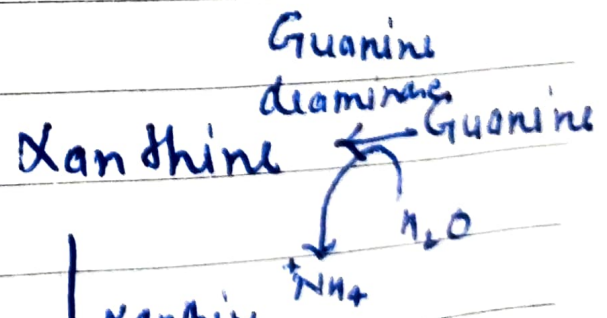 Guanine
deaminase
Xanthine ← Guanine
H₂O
⁺NH₄